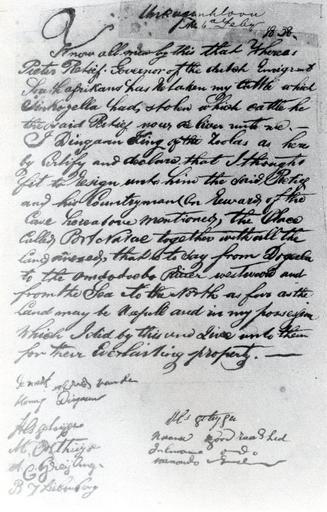 Unkunginsloave
the 4th Feby
1838
Know all men by this that Whereas
Pieter Retief. Governor of the dutch Emigrant
South afrikans has Retaken my Cattle which
Sinkonyella had, stolen which cattle he
the said Retief now deliver unto me.
I Dingaan King of the Zoolas as here
by Certify and declare, that I thought
fit to Resign unto him the said Retief
and his Countrymen (on Reward of the
Case hereabove mentioned) the Place
Called Port Natal together with all the
land annexed, that is to say from Dogeela
to the Omsoboebo River westward and
from the Sea to the North as far as the
Land may be Usefull and in my possession
Which I did by this and Give unto them
for their Everlasting property.
De merk of the
Koning Dingaan
M. Oosthuyse
A C Greyling
B J Liebenberg
Nwara Groot raadslid
Juliwane do.
Manondo